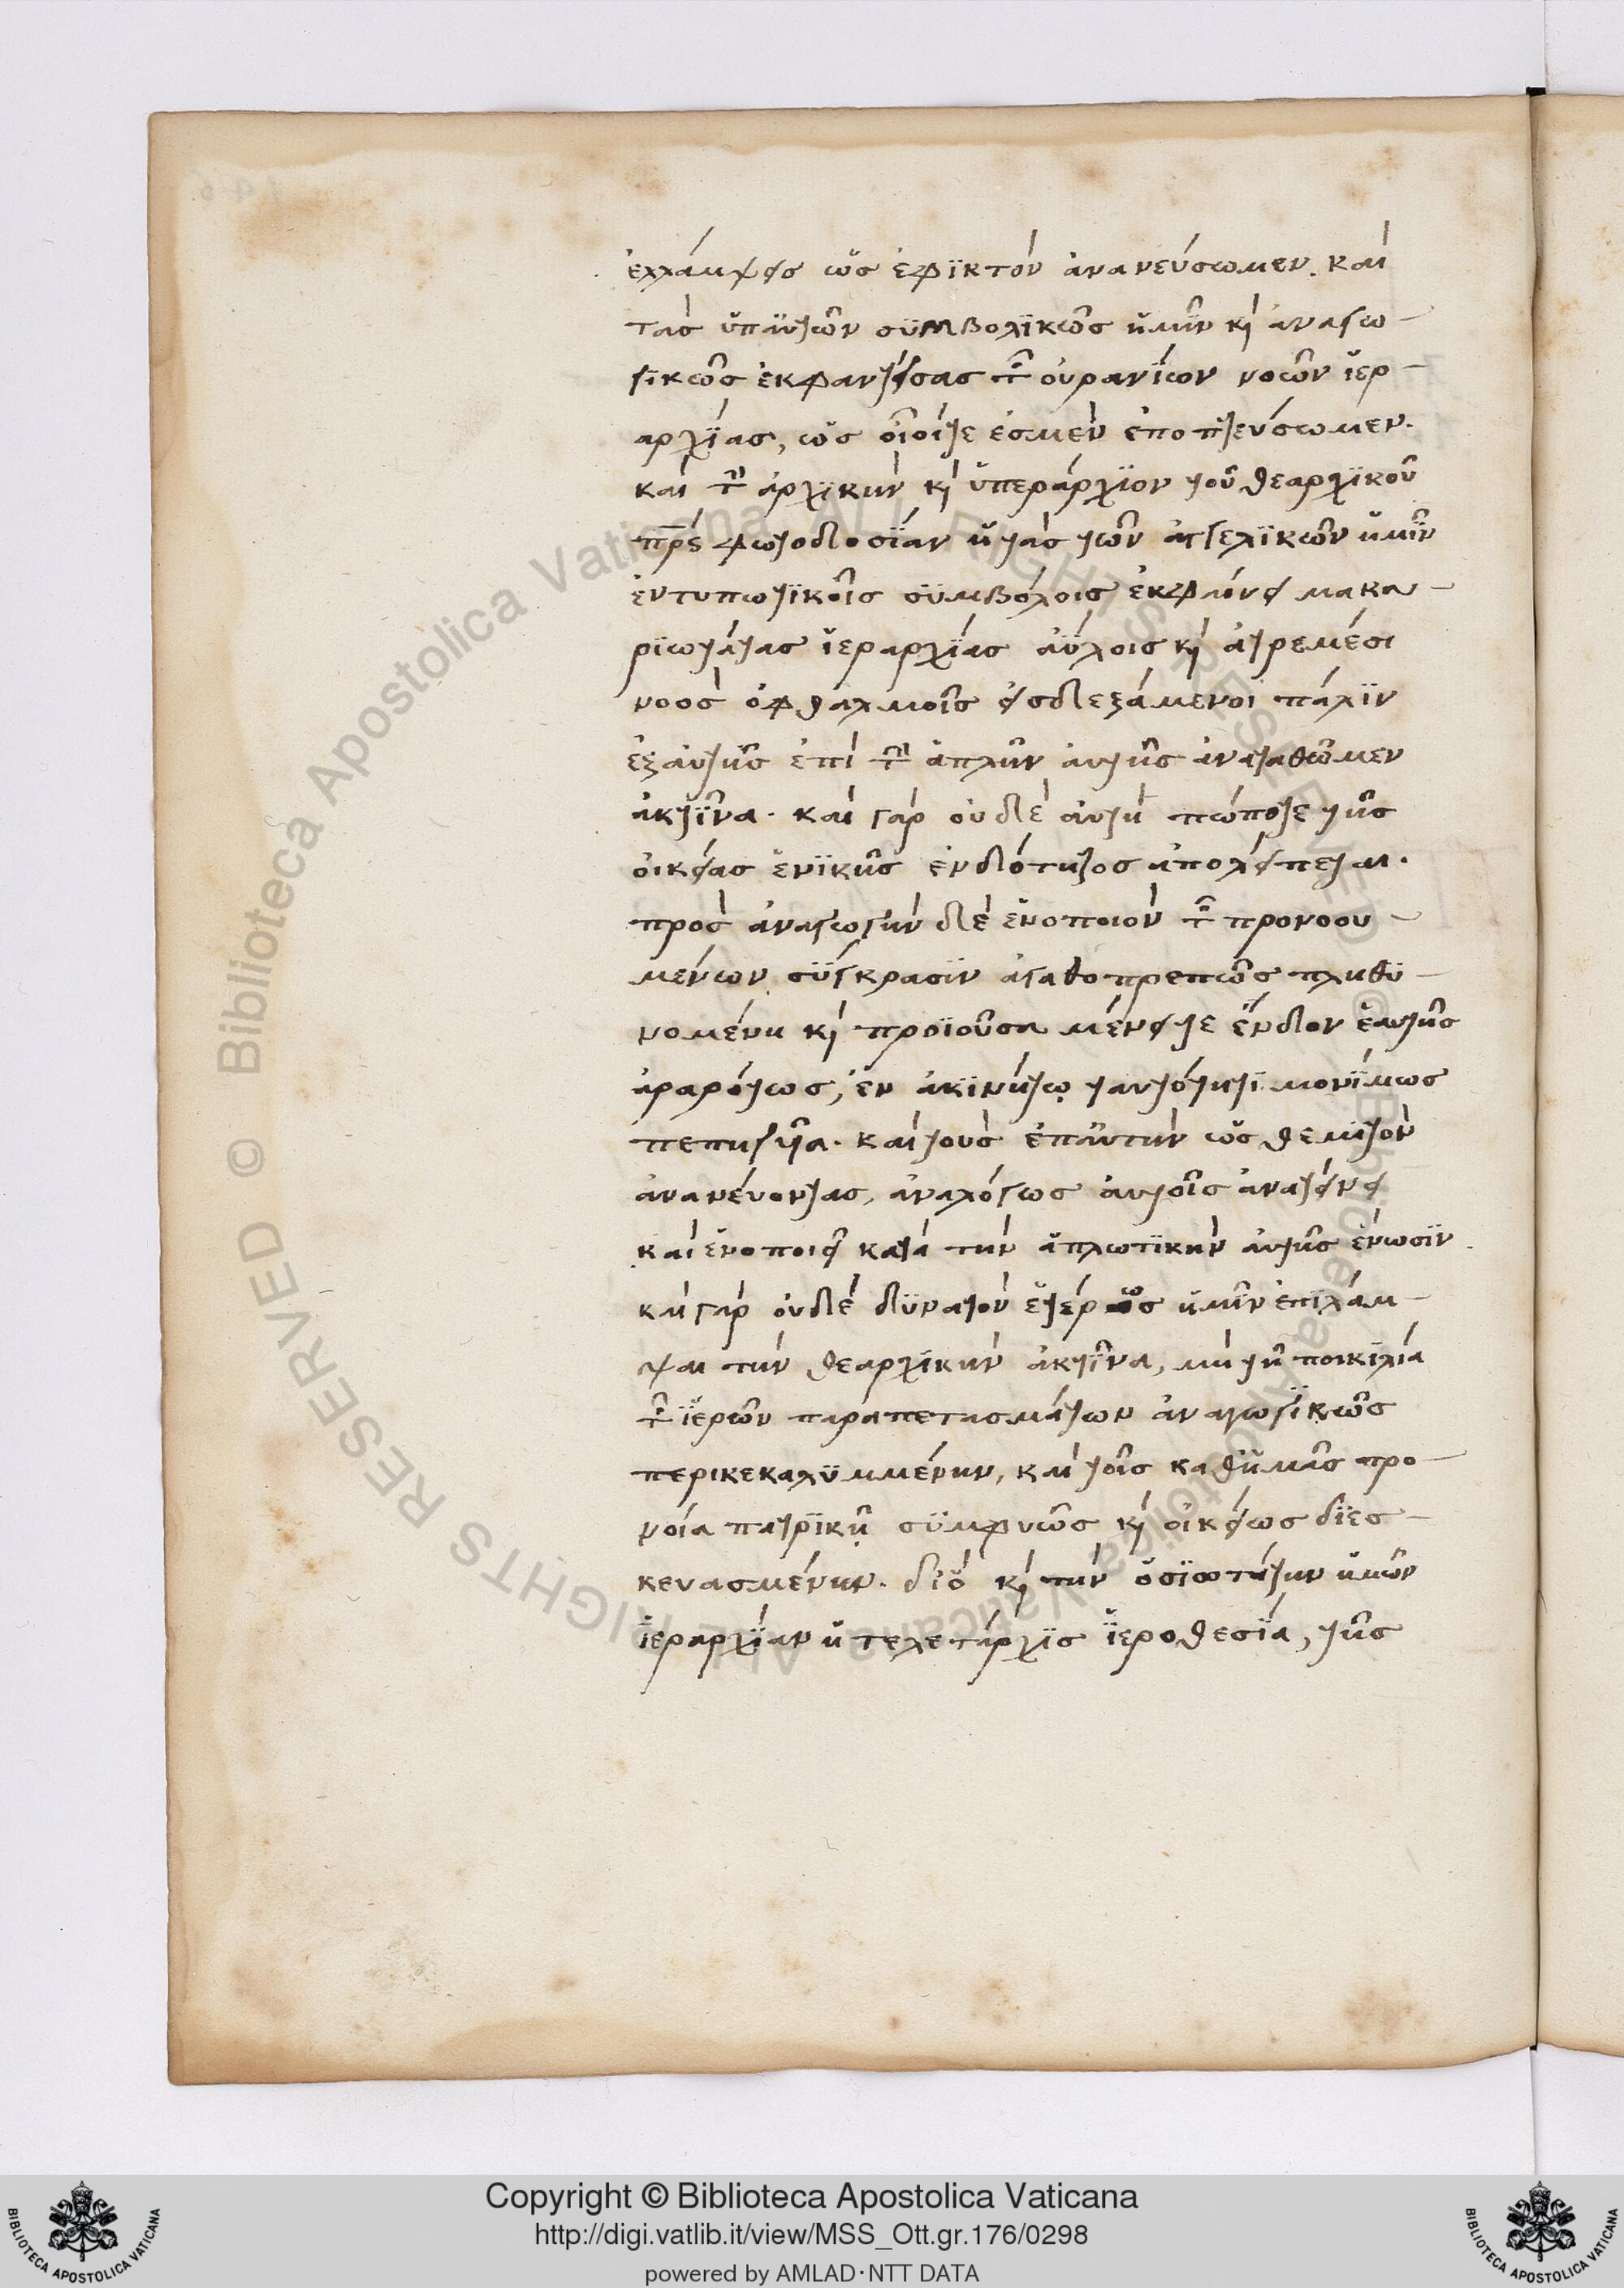 ἐλλάμψεις ὡς ἐφικτὸν ἀνανεύσωμεν. καὶ
τὰς ὑπ' αὐτῶν συμβολικῶς ἡμῖν κὶ ἀναγω-
γικῶς ἐκφανθείσας τῶν οὐρανίων νοῶν ἱερ-
αρχίας, ὡς οἷοίτε ἐσμὲν ἐποπτεύσωμεν.
καὶ τὴν ἀρχικὴν κὶ ὑπεράρχιον τοῦ θεαρχικοῦ
πρς φωτοδοσίαν ἣ τὰς τῶν ἀγγελικῶν ἡμῖν
ἐντυπωτικοῖς συμβόλοις ἐκφαίνει μακα-
ριωτάτας ἱεραρχίας ἀΰλοις κὶ ἀτρεμέσι
νοὸς ὀφθαλμοῖς εἰσδεξάμενοι πάλιν
ἐξ αὐτῆς ἐπὶ τὴν ἁπλῆν αὐτῆς ἀναταθῶμεν
ἀκτῖνα. καὶ γὰρ οὐδὲ αὐτὴ πώποτε τῆς
οἰκείας ἑνικῆς ἐνδότητος ἀπολείπεται.
πρὸς ἀναγωγὴν δὲ ἑνοποιὸν τῶν προνοου-
μένων σύγκρασιν ἀγαθοπρεπῶς πληθυ-
νομένη κὶ προϊοῦσα μένει τε ἔνδον ἑαυτῆς
ἀραρότως, ἐν ἀκινήτῳ ταυτότητι μονίμως
πεπηγυῖα. καὶ τοὺς ἐπ' αὐτὴν ὡς θεμιτὸν
ἀνανεύοντας, ἀναλόγως αὐτοῖς ἀνατείνει
καὶ ἑνοποιεῖ κατὰ τὴν ἁπλωτικὴν αὐτῆς ἕνωσιν.
καὶ γὰρ οὐδὲ δυνατὸν ἑτέρως ἡμῖν ἐπιλάμ-
ψαι τὴν θεαρχικὴν ἀκτῖνα, μὴ τῇ ποικιλία
τῶν ἱερῶν παραπετασμάτων ἀναγωγικῶς
περικεκαλυμμένην, καὶ τοῖς καθ' ἡμᾶς προ-
νοία πατρικῇ συμφυῶς κὶ οἰκείως διεσ-
κευασμένην. διὸ κὶ τὴν ὁσιωτάτην ἡμῶν
ἱεραρχίαν ἡ τελετάρχις ἱεροθεσία, τῆς
Copyright © Biblioteca Apostolica Vaticana
http://digi.vatlib.it/view/MSS_Ott.gr.176/0298
powered by AMLAD·NTT DATA